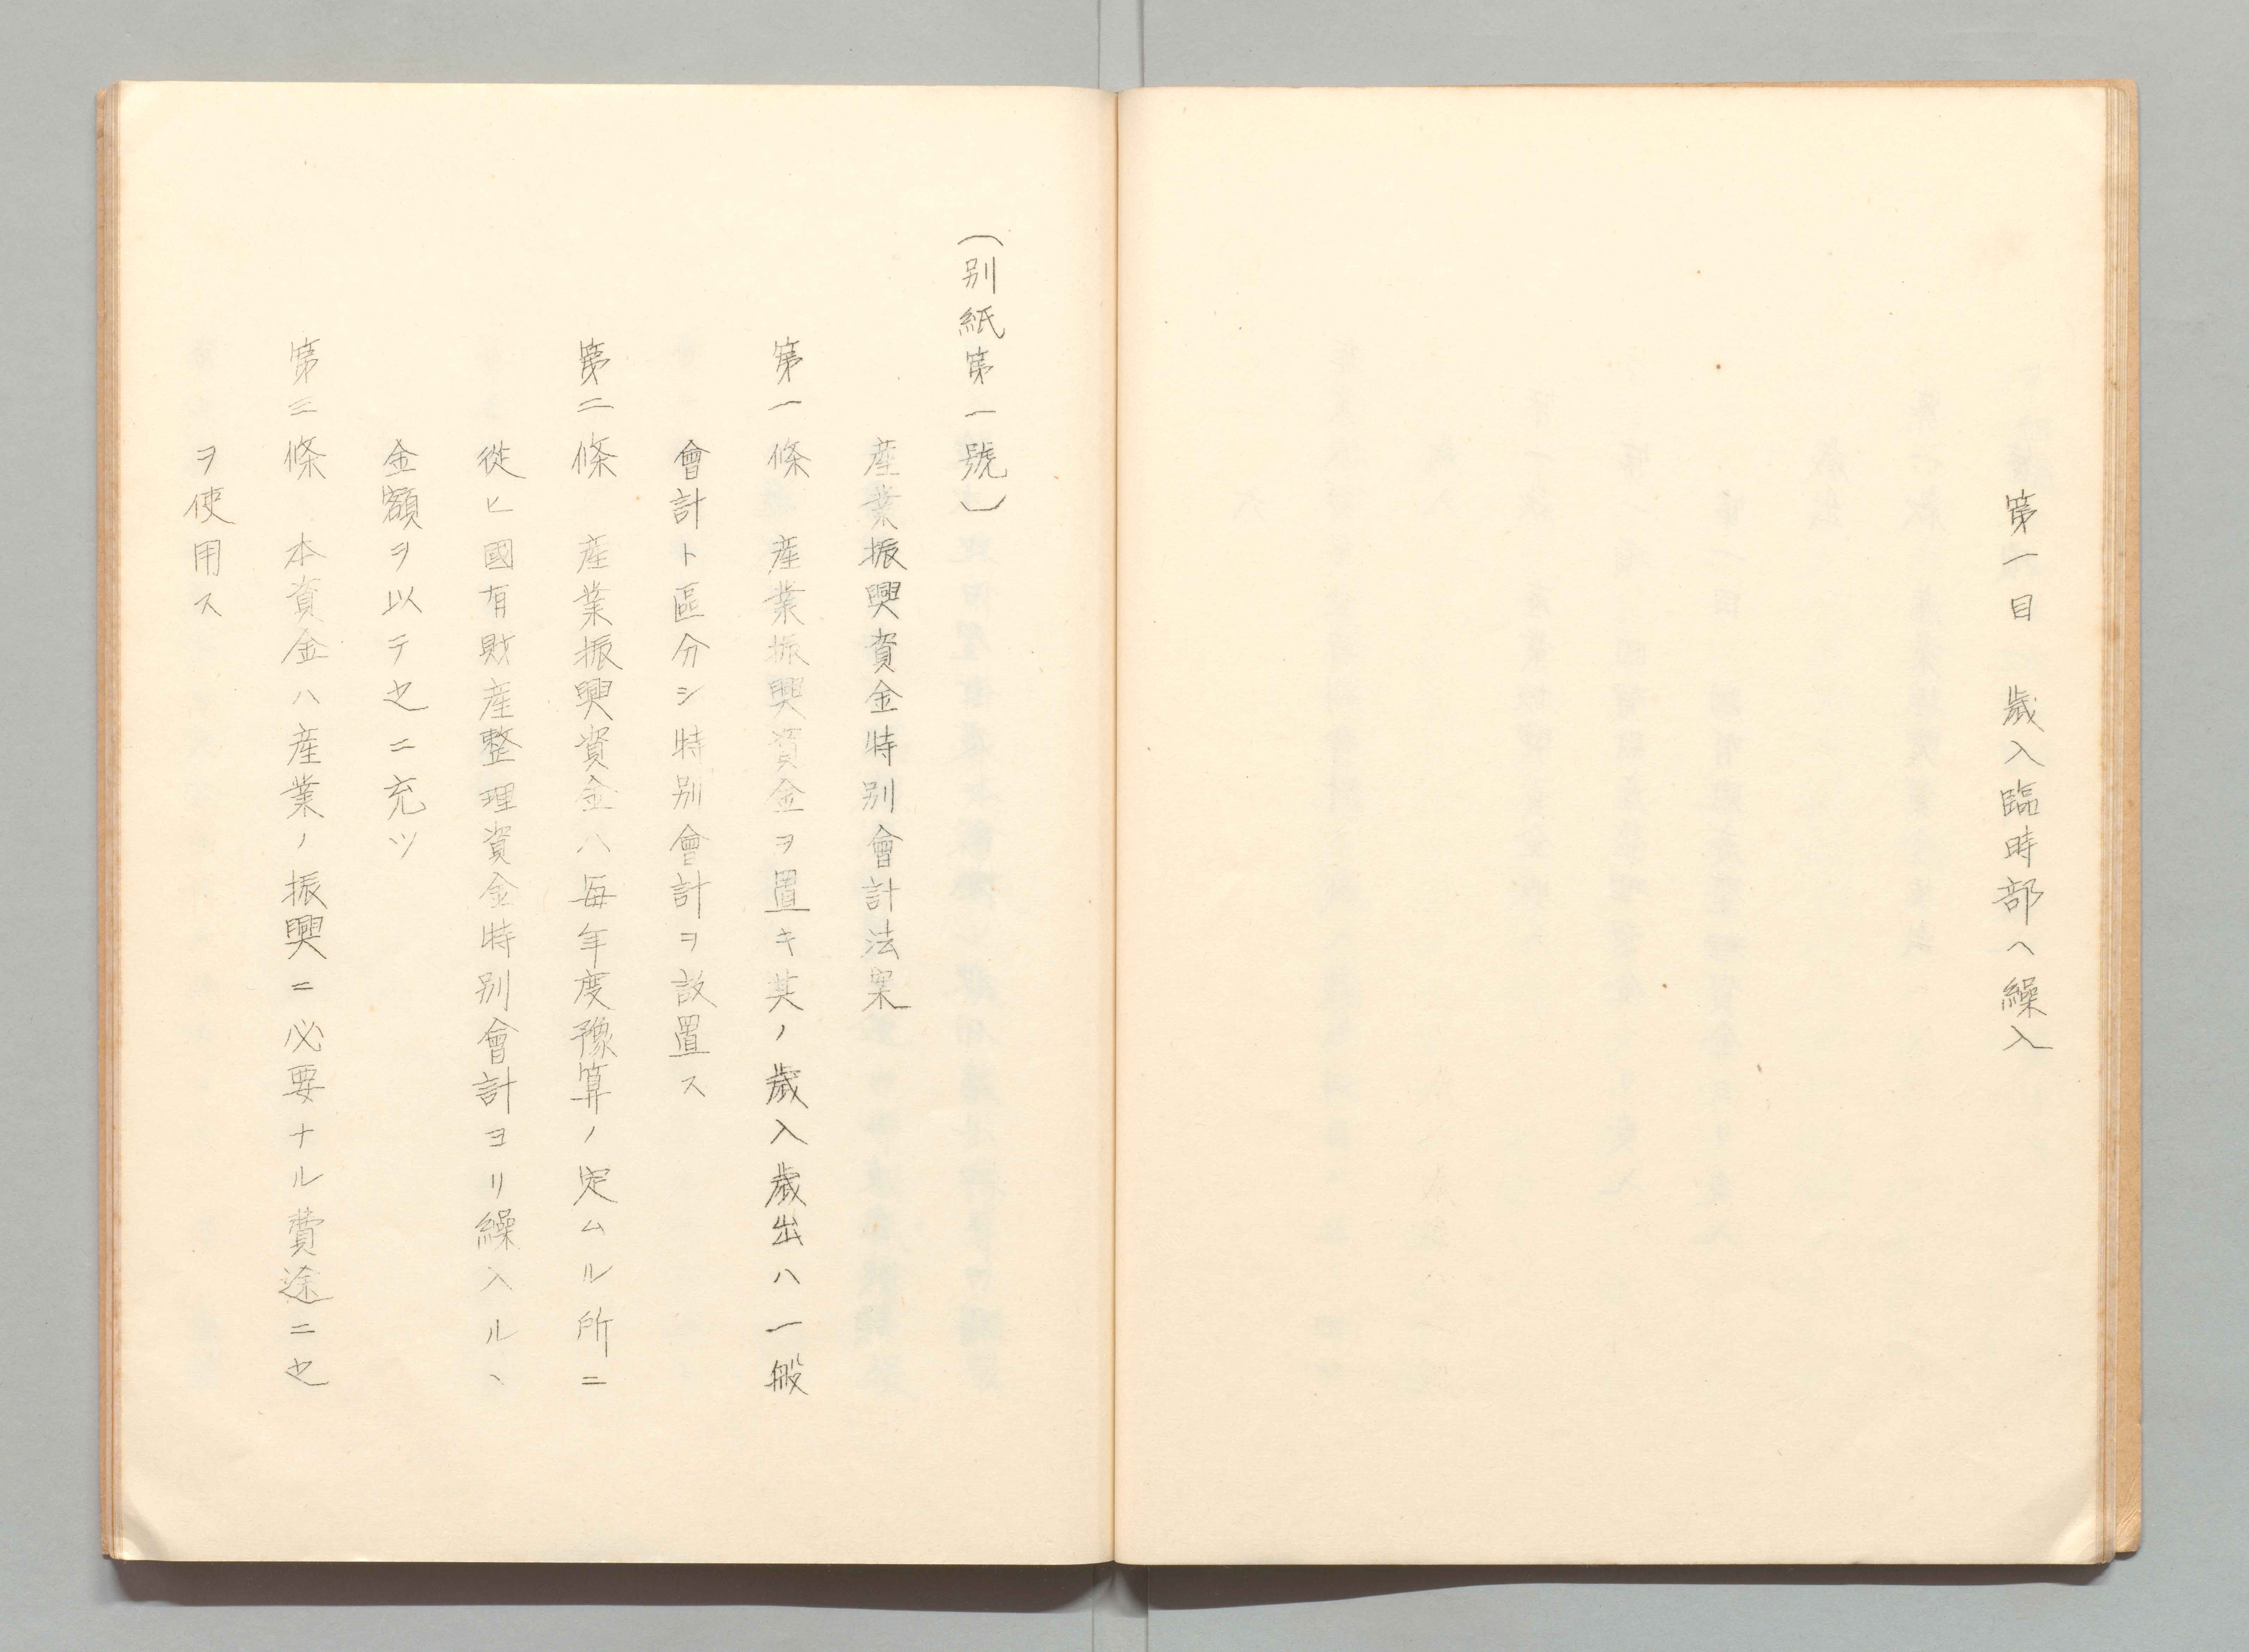 第一目　歳入臨時部ヘ繰入
（別紙第一號）
産業振興資金特別會計法案
第一條　産業振興資金ヲ置キ其ノ歳入歳出ハ一般
會計ト區分シ特別會計ヲ設置ス
第二條　産業振興資金ハ毎年度豫算ノ定ムル所ニ
從ヒ國有財産整理資金特別會計ヨリ繰入ルヽ
金額ヲ以テ之ニ充ツ
第三條　本資金ハ産業ノ振興ニ必要ナル費途ニ之
ヲ使用ス